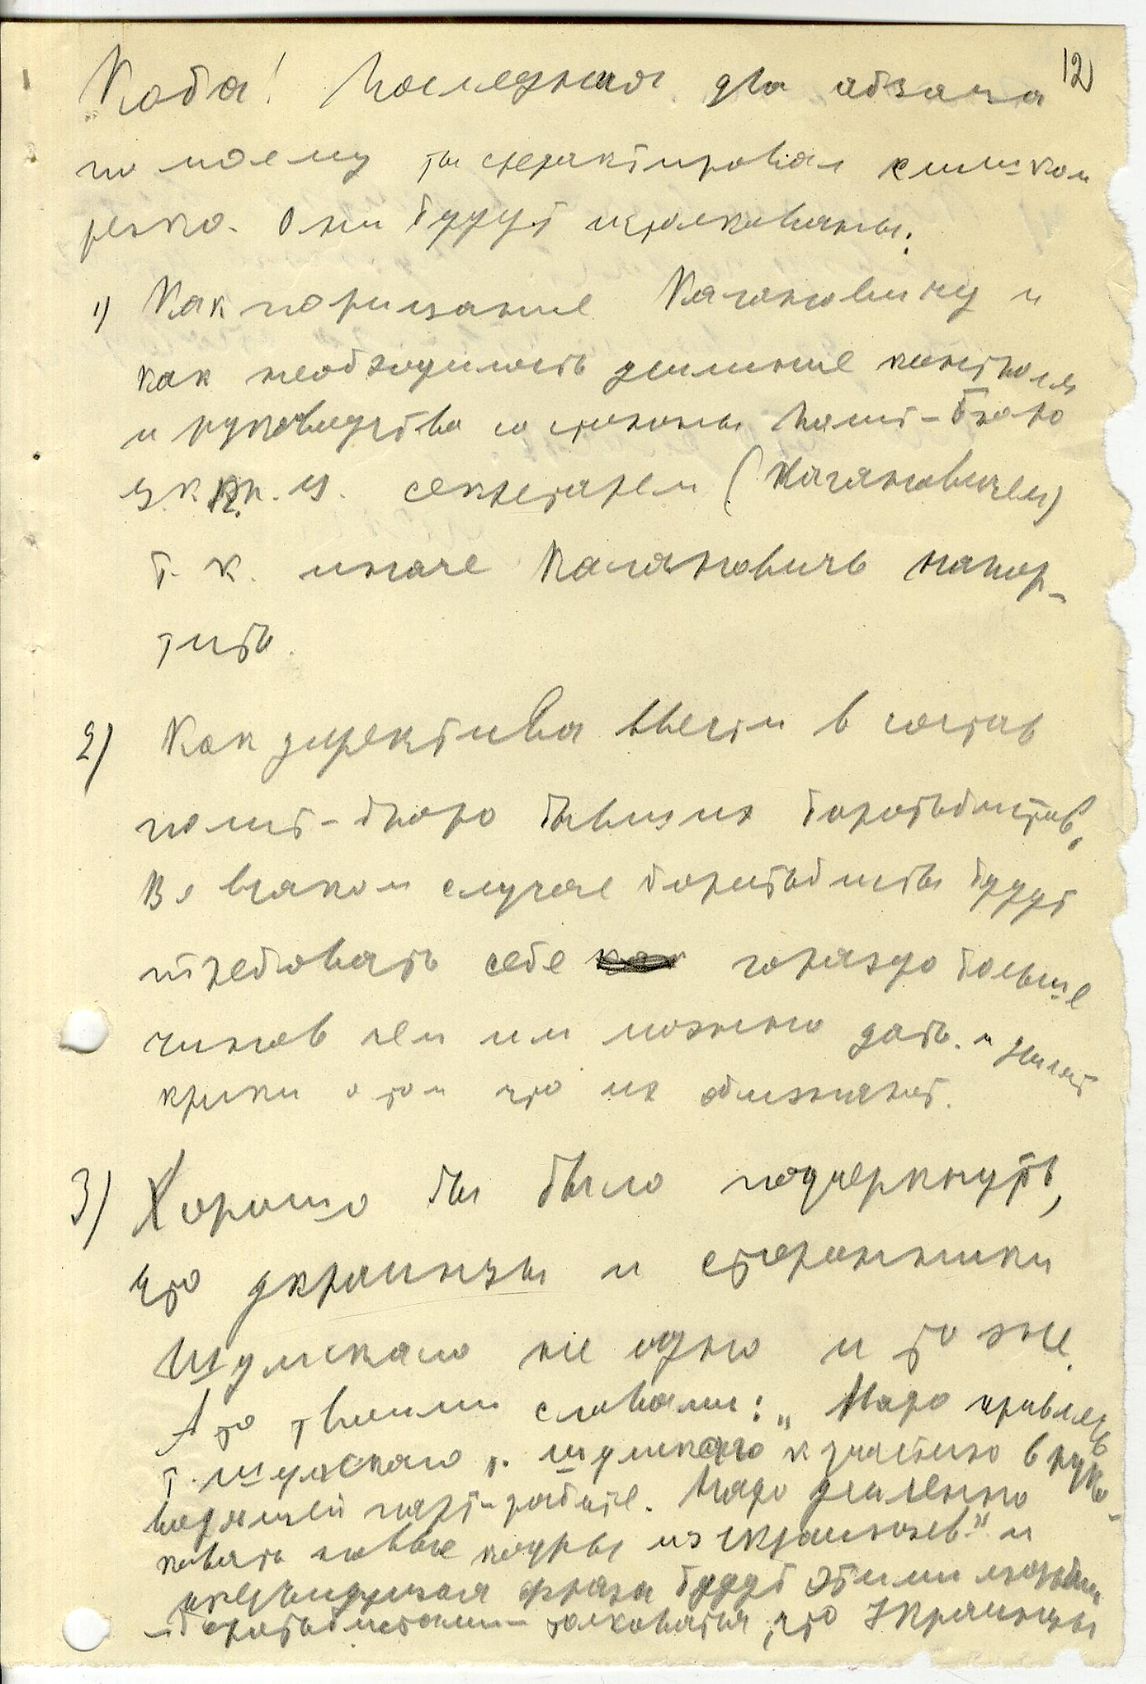 12
„Коба! Последния два абзаца
по моему ты средактировал слишком
резко. Они будут истолкованы:
1) Как порицание Кагановичу и
как необходимость усиление контроля
и руководства со стороны Полит-бюро
Ц.К. секретарем (Кагановичем)
т.к. иначе Каганович напор-
тить.
2) Как директива ввести в состав
полит-бюро бывших боротьбистов,
Во всяком случае боротьбисты будут
требовать себе гораздо больше
чинов чем им можно дать. и
крики о том что их обижают.
3) Хорошо бы было подчеркнуть,
что украинцы и сторонники
Шумскаго не одно и то же.
А то твоими словами: „Надо привлечь
т. Шумскаго к участию в руко-
водящей парт-работе. Надо усиленно
ковать новые кадры из украинцев" и
фраза будут этими
-боротьбистами- толковаться, что Украинцы